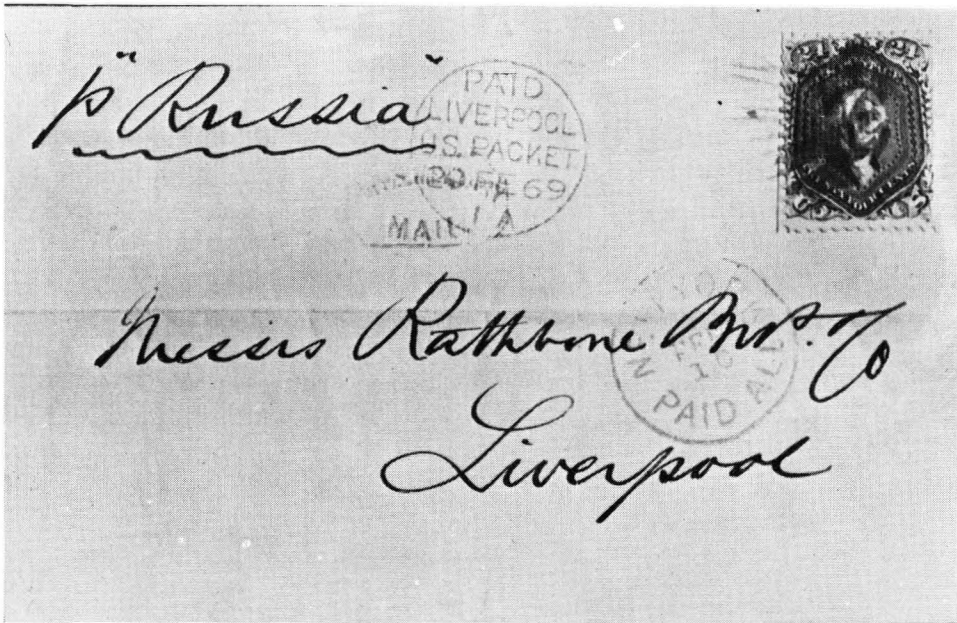 p "Russia"
PAID
LIVERPOOL
U.S. PACKET
20 FE 69
1 A
MAIL
24 24
U S
Messrs Rathbone Bros. & Co
Liverpool
N YORK
FEB
10
PAID ALL